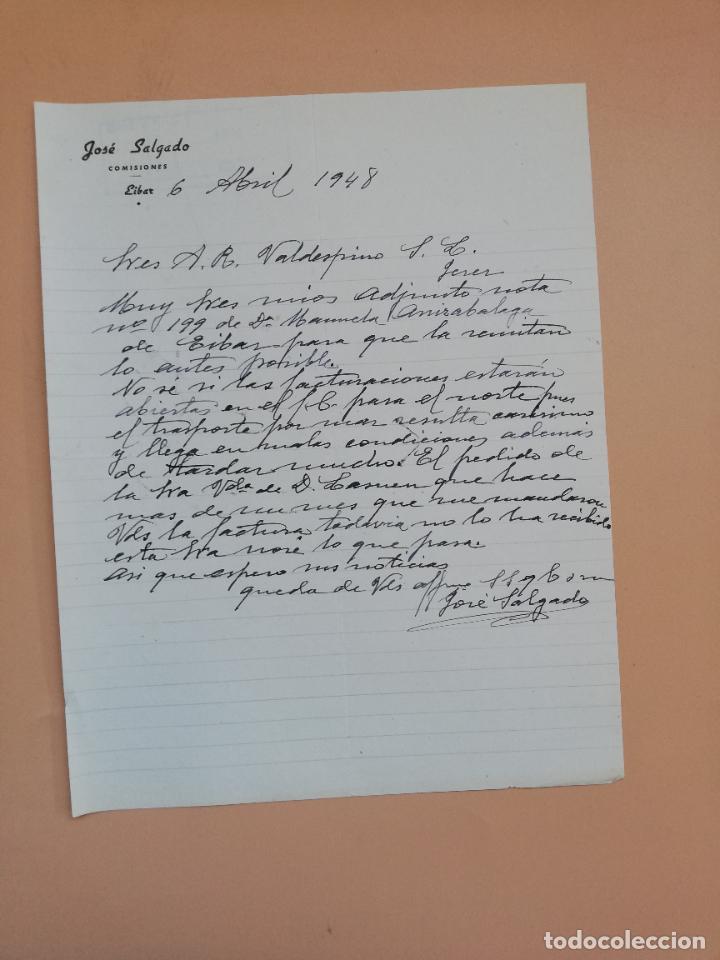 José Salgado
COMISIONES
Eibar 6 Abril 1948
Sres A. R. Valdespino S. L.
Jerez
Muy Sres mios Adjunto nota
nº 199 de Dª Manuela Arrizabalaga
de Eibar para que la remitan
lo antes posible.
No sé si las facturaciones estarán
abiertas en el f.c. para el norte pues
el trasporte por mar resulta carisimo
y llega en malas condiciones además
de tardar mucho. El pedido de
la Sra Vda de D. que hace
mas de un mes que me mandaron
Vds la factura todavia no lo ha recibido
esta Sra nosé lo que pasa.
Asi que espero sus noticias
queda de Vds affmo
José Salgado
todocoleccion.net